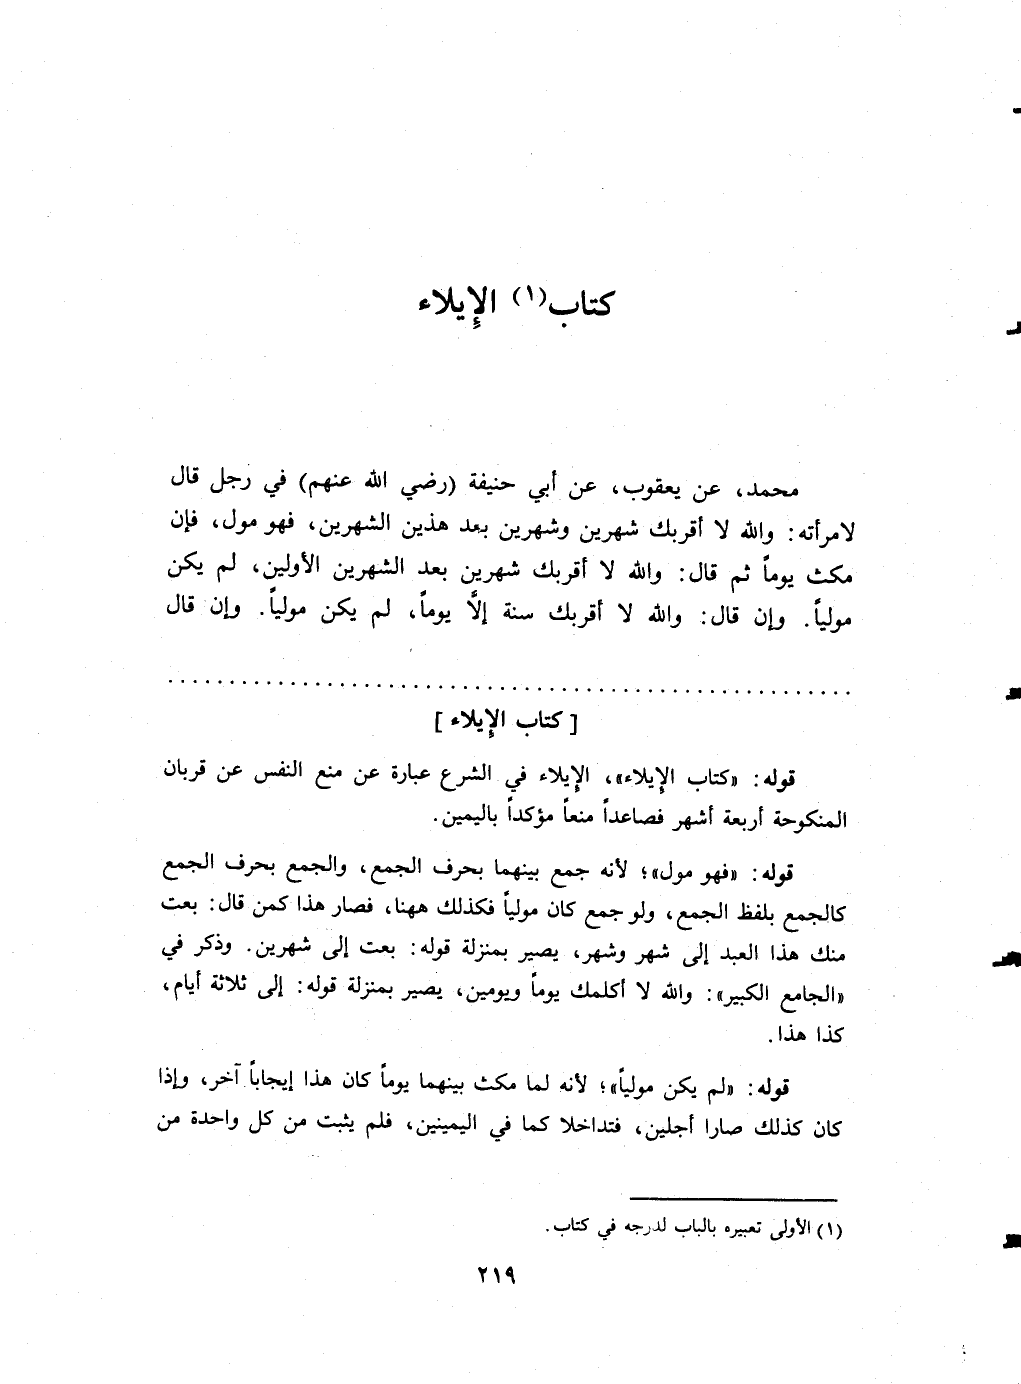 كتاب(١) الإيلاء
محمد، عن يعقوب، عن أبي حنيفة (رضي الله عنهم) في رجل قال
لامرأته: والله لا أقربك شهرين وشهرين بعد هذين الشهرين، فهو مول، فإن
مكث يوماً ثم قال: والله لا أقربك شهرين بعد الشهرين الأولين، لم يكن
مولياً. وإن قال: والله لا أقربك سنة إلَّا يوماً، لم يكن مولياً. وإن قال
[ كتاب الإيلاء ]
قوله: «كتاب الإيلاء»، الإيلاء في الشرع عبارة عن منع النفس عن قربان
المنكوحة أربعة أشهر فصاعداً منعاً مؤكداً باليمين.
قوله: «فهو مول»؛ لأنه جمع بينهما بحرف الجمع، والجمع بحرف الجمع
كالجمع بلفظ الجمع، ولو جمع كان مولياً فكذلك ههنا، فصار هذا كمن قال: بعت
منك هذا العبد إلى شهر وشهر، يصير بمنزلة قوله: بعت إلى شهرين. وذكر في
«الجامع الكبير»: والله لا أكلمك يوماً ويومين، يصير بمنزلة قوله: إلى ثلاثة أيام،
كذا هذا.
قوله: «لم يكن مولياً»؛ لأنه لما مكث بينهما يوماً كان هذا إيجاباً آخر، وإذا
كان كذلك صارا أجلين، فتداخلا كما في اليمينين، فلم يثبت من كل واحدة من
(١) الأولى تعبيره بالباب لدرجه في كتاب.
٢١٩